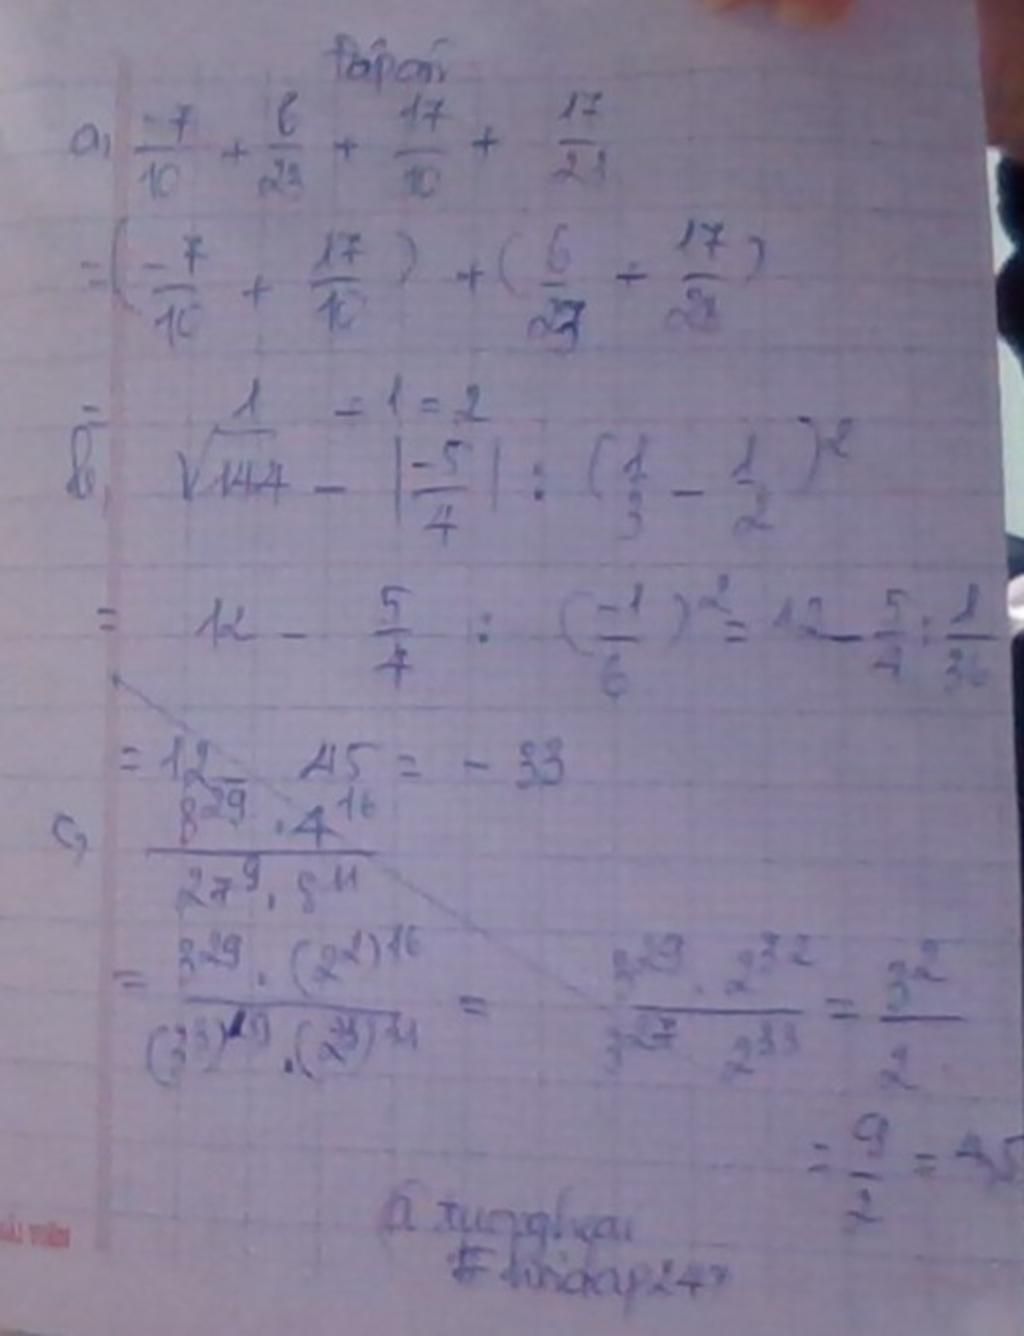 Đáp án
a, -7/10 + 6/23 + 17/10 + 17/23
= (-7/10 + 17/10) + (6/23 + 17/23)
= 1 + 1 = 2
b, √144 - |-5/4| : (1/3 - 1/2)^2
= 12 - 5/4 : (-1/6)^2 = 12 - 5/4 : 1/36
= 12 - 45 = -33
c, 8^29 . 4^16 / 27^9 . 8^11
= 3^29 . (2^2)^16 / (3^3)^9 . (2^3)^11 = 3^29 . 2^32 / 3^27 2^33 = 3^2 / 2
= 9/2 = 4,5